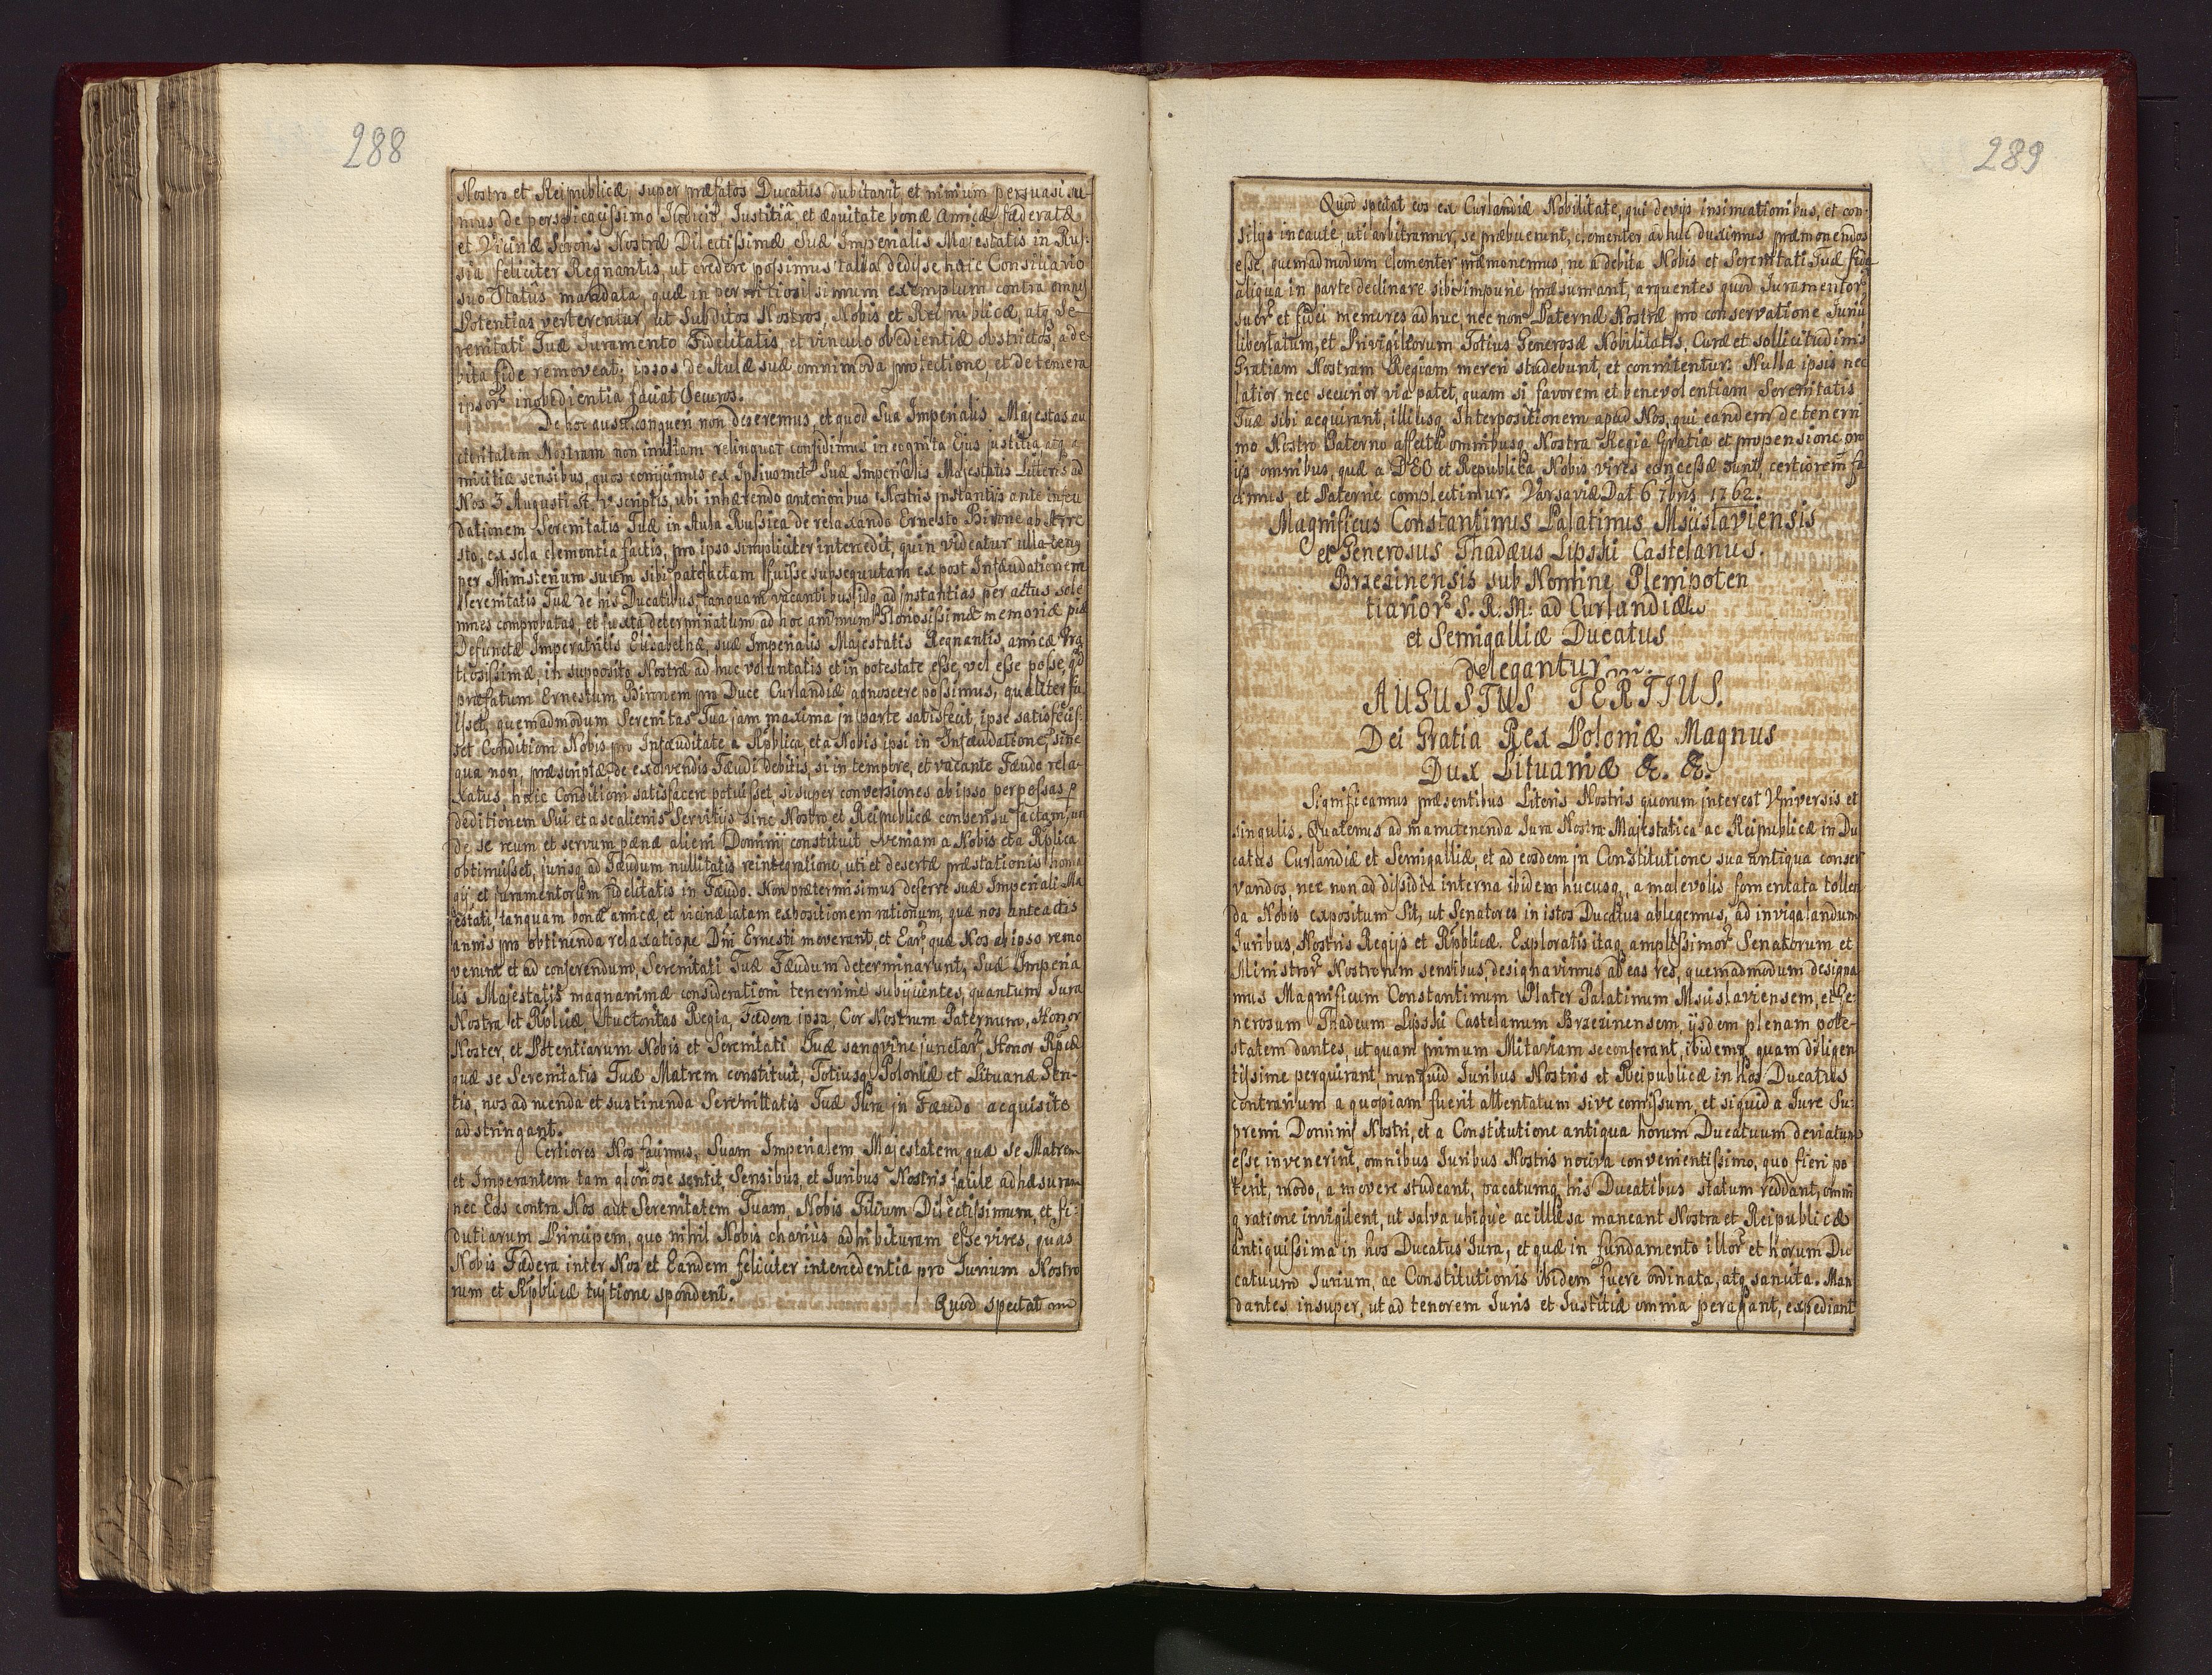 288
Nostro et Reipublicæ, super præfatos Ducatus dubitavit, et nimium persuasi su-
mus de perspicacissimo Judicio, Justitiâ, et æquitate bonæ Amicæ, fæderatæ
et Vicinæ Sororis Nostræ Dilectissimæ Suæ Imperialis Majestatis in Rus-
sia feliciter Regnantis, ut credere possimus talia dedisse huic Consiliario
suo Statûs mandata, quæ in perniciosissimum exemplum contra omnes
Potentias verterentur, ut Subditos Nostros, Nobis et Reipublicæ, atq Se-
renitati Tuæ Juramento Fidelitatis et vinculo obedientiæ obstrictos, a de-
bita fide removeat; ipsos de Aulæ suæ omnimoda protectione, et de temera
ipsor inobedientia faciat Securos.
De hoc ausu conqueri non deseremus, et quod Sua Imperialis Majestas au
ctoritatem Nostram non inultam relinquet confidimus in cognita Ejus justitia, atq a-
micitiæ sensibus, quos conjicimus ex Ipsiusmet Suæ Imperialis Majestatis Litteris ad
Nos 3 Augusti St. v. scriptis, ubi inhærendo anterioribus Nostris instantijs ante infeu
dationem Serenitatis Tuæ in Aula Russica de relaxando Ernesto Birone ab Arre
sto, ex sola clementia factis, pro ipso simpliciter intercedit, quin videatur ullateng
per Ministerium suum sibi patefactam fuisse subsequutam ex post Infæudationem
Serenitatis Tuæ de his Ducatibus, tanquam vacantibus, idq ad instantias per actus sole
mnes comprobatas, et juxta determinatum ad hoc animum Gloriosissimæ memoriæ piæ
Defunctæ Imperatricis Elisabethæ, suæ Imperialis Majestatis Regnantis, amicæ Gra
tiosissimæ, in supposito Nostræ ad huc voluntatis et in potestate esse, vel esse posse, qd
præfatum Ernestum Bironem pro Duce Curlandiæ agnoscere possimus, qualiter fu
isset, quemadmodum Serenitas Tua jam maxima in parte satisfecit, ipse satisfecis-
set Conditioni Nobis pro Infæuditate a Rplica, et a Nobis ipsi in Infæudatione, sine
qua non, præscriptæ de exolvendis Fæudi debitis, si in tempore, et vacante Fæudo rela-
xatus, huic Conditioni satisfacere potuisset, si super conversiones ab ipso perpessas p
deditionem Sui et a se alienis Servitijs sine Nostro et Reipublicæ consensu factam, un
de se reum et servum pænæ alieni Dominij constituit, veniam a Nobis et a Rplica
obtinuisset, jurisq ad Fæudum nullitatis reintegratione, uti et desertæ præstationis homa
gij et juramentorum fidelitatis in Fæudo. Non prætermisimus deferre suæ Imperiali Ma
jestati, tanquam bonæ amicæ, et vicinæ latam expositionem rationum, quæ nos anteactis
annis pro obtinenda relaxatione Dni Ernesti moverant, et Ear quæ Nos ab ipso remo
verunt et ad conferendum, Serenitati Tuæ Fæudum determinarunt, Suæ Imperia
lis Majestatis magnanimæ considerationi tenerrime subijcientes, quantum Jura
Nostra et Rplicæ, Auctoritas Regia, Fædera ipsa, Cor Nostrum Paternum, Honor
Noster, et Potentiarum Nobis et Serenitati Tuæ sangvine junctar, Honor Rplicæ
quæ se Serenitatis Tuæ Matrem constituit, Totiusq Poloniæ et Lituanæ Gen-
tis, nos ad menda et sustinenda Serenittatis Tuæ Jura in Fæudo acquisito
ad stringant.
Certiores Nos facimus, Suam Imperialem Majestatem, quæ se Matrem
et Imperantem tam gloriose sentit, Sensibus, et Juribus Nostris facile adhæsuram
nec Eas contra Nos aut Serenitatem Tuam, Nobis Filium Dilectissimum, et fi-
dutiarum Principem, quo nihil Nobis charius adhibituram esse vires, quas
Nobis Fædera inter Nos et Eandem feliciter intercedentia pro Jurium Nostro
rum et Rpblicæ tuitione spondent.
Quod spectat
289
Quod spectat eos ex Curlandiæ Nobilitate, qui devijs insinuationibus, et con-
silijs incautè, uti arbitramur, se præbuerunt, clementer ad huc duximus præmonendos
esse, quemadmodum clementer præmonemus, ne a debita Nobis et Serenitati Tuæ fide
aliqua in parte declinare sibi impune præsumant, arguentes quod Juramentor
suor et fidei memores ad huc, nec non Paternæ Nostræ pro conservatione Juriu
libertatum, et Privigileorum Totius Generosæ Nobilitatis, Curæ et sollicitudinis
Gratiam Nostram Regiam mereri studebunt, et connitentur. Nulla ipsis nec
latior nec securior via patet, quam si favorem et benevolentiam Serenitatis
Tuæ sibi acquirant, illiusq Interpositionem apud Nos, qui eandem de tenerri
mo Nostro Paterno affectu omnibusq Nostra Regia Gratia et propensione pro
ijs omnibus, quæ a DEO et Republica Nobis vires concessæ sunt, certiorem fa
cimus, et Paterne complectimur. Varsaviæ Dat 6 7bris 1762.
Magnificus Constantinus Palatinus Mscislaviensis
et Generosus Thadæus Lipski Castelanus.
Brzezinensis sub Nomine Plenipoten
tiarior S. R. M. ad Curlandiæ
et Semigalliæ Ducatus
delegantur.
AUGUSTUS TERTIUS.
Dei Gratia Rex Poloniæ Magnus
Dux Lituaniæ &. &.
Significamus præsentibus Literis Nostris quorum interest Universis et
singulis. Quatenus ad manutenenda Jura Nostra Majestatica ac Reipublicæ in Du
catus Curlandiæ et Semigalliæ, et ad eosdem in Constitutione sua antiqua conser
vandos, nec non ad dissidia interna ibidem hucusq, a malevolis fomentata tollen
da Nobis expositum sit, ut Senatores in istos Ducatus ablegemus, ad invigalandum
Juribus Nostris Regijs et Rpblicæ. Exploratis itaq amplissimor Senatorum et
Ministror Nostrorum sensibus, designavimus ab eas res, quemadmodum designa
mus Magnificum Constantinum Plater Palatinum Mscislaviensem, et Ge-
nerosum Thadeum Lipski Castelanum Brzezinensem, ijsdem plenam pote-
statem dantes, ut quam primum Mitaviam se conferant, ibidemq quam diligen
tissime perquirant, nunquid Juribus Nostris et Reipublicæ in hos Ducatus
contrarium a quopiam fuerit attentatum sive comissum, et siquid a Jure Su-
premi Dominij Nostri, et a Constitutione antiqua horum Ducatuum deviatum
esse invenerint, omnibus Juribus Nostris nociva convenientissimo, quo fieri po
terit, modo, a movere studeant, pacatumq his Ducatibus statum reddant, omni
q ratione invigilent, ut salva ubique ac illæsa maneant Nostra et Reipublicæ
antiquissima in hos Ducatus Jura, et quæ in fundamento illor et horum Du
catuum Jurium, ac Constitutionis ibidem fuere ordinata, atq sancita. Man
dantes insuper, ut ad tenorem Juris et Justitiæ omnia peragant, expediant